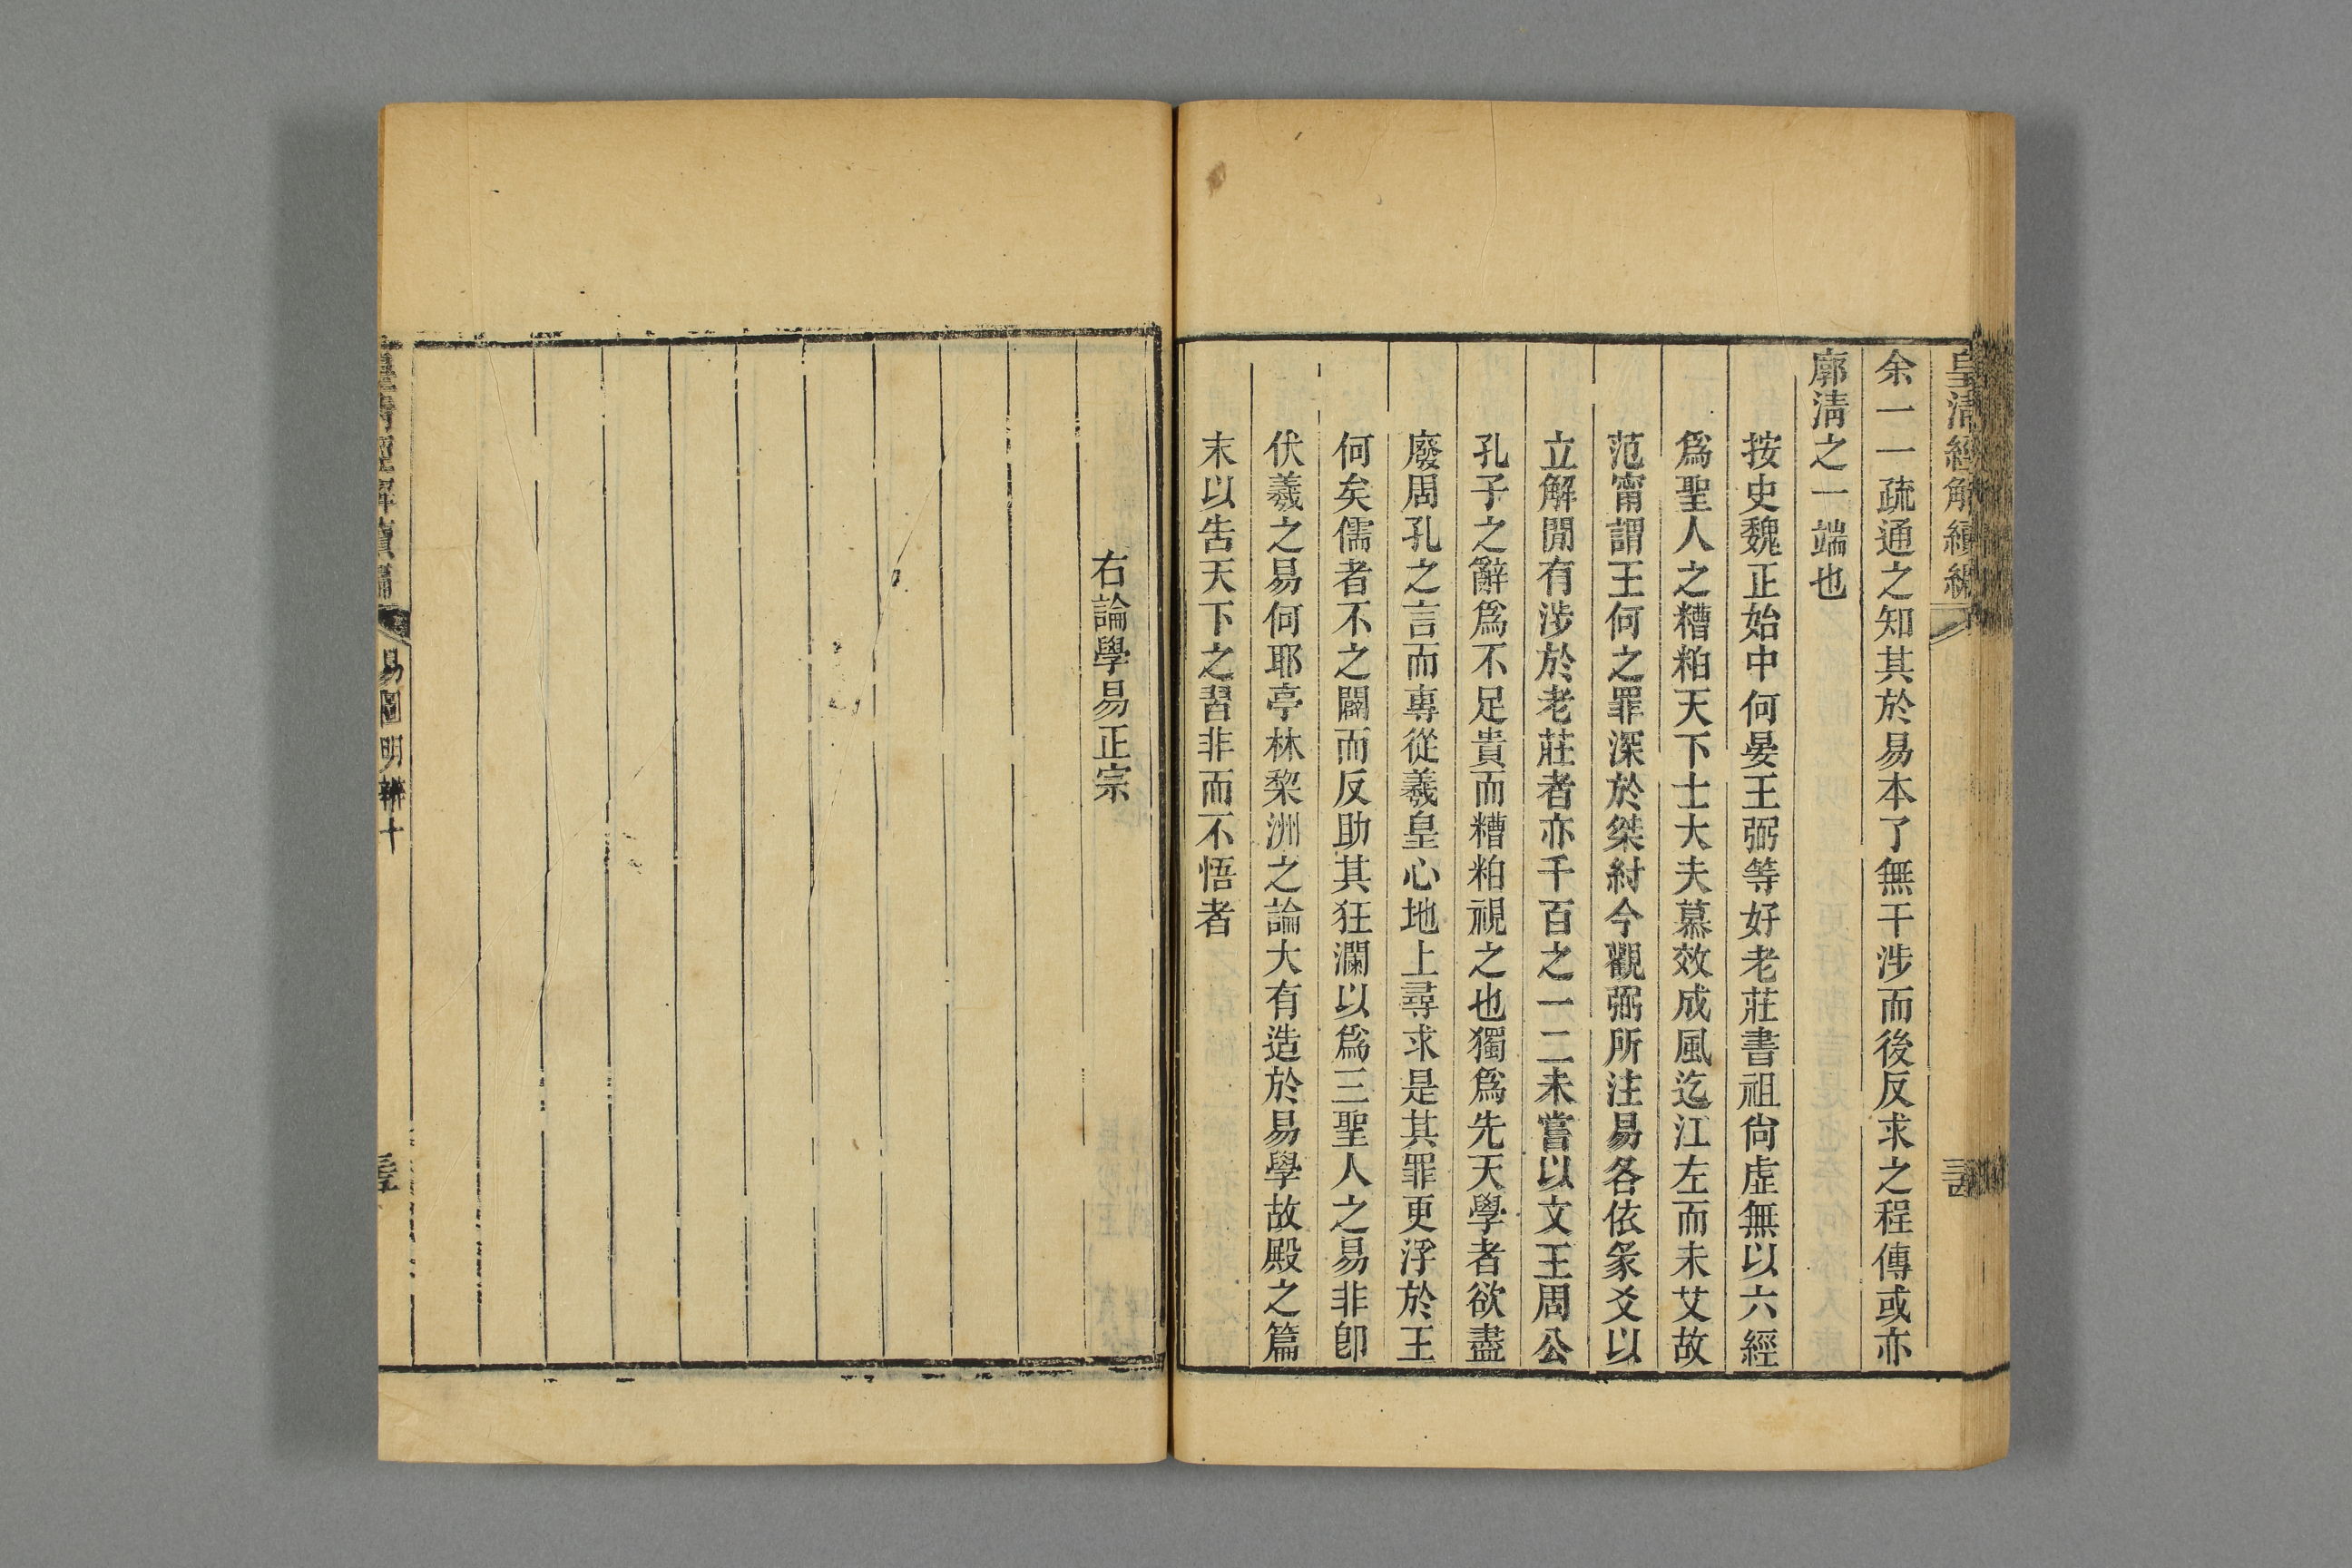 皇清經解續編
余一一疏通之知其於易本了無干涉而後反求之程傳或亦
廓清之一端也
按史魏正始中何晏王弼等好老莊書祖尚虛無以六經
爲聖人之糟粕天下士大夫慕效成風迄江左而未艾故
范甯謂王何之罪深於桀紂今觀弼所注易各依彖爻以
立解閒有涉於老莊者亦千百之一二未嘗以文王周公
孔子之辭爲不足貴而糟粕視之也獨爲先天學者欲盡
廢周孔之言而專從羲皇心地上尋求是其罪更浮於王
何矣儒者不之闢而反助其狂瀾以爲三聖人之易非卽
伏羲之易何耶亭林棃洲之論大有造於易學故殿之篇
末以告天下之習非而不悟者
右論學易正宗
皇清經解續編
易圖明辨十